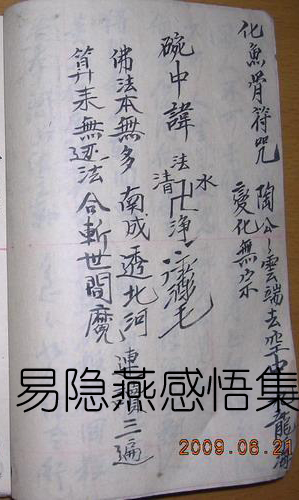 化魚骨符咒
陶公雲端去空中龍
變化無宗
碗中諱
法水
清卍淨
佛法本無多 南成透北河 連唸三遍
算来無迹法 合斬世間魔
易隐燕感悟集
2009.06.21